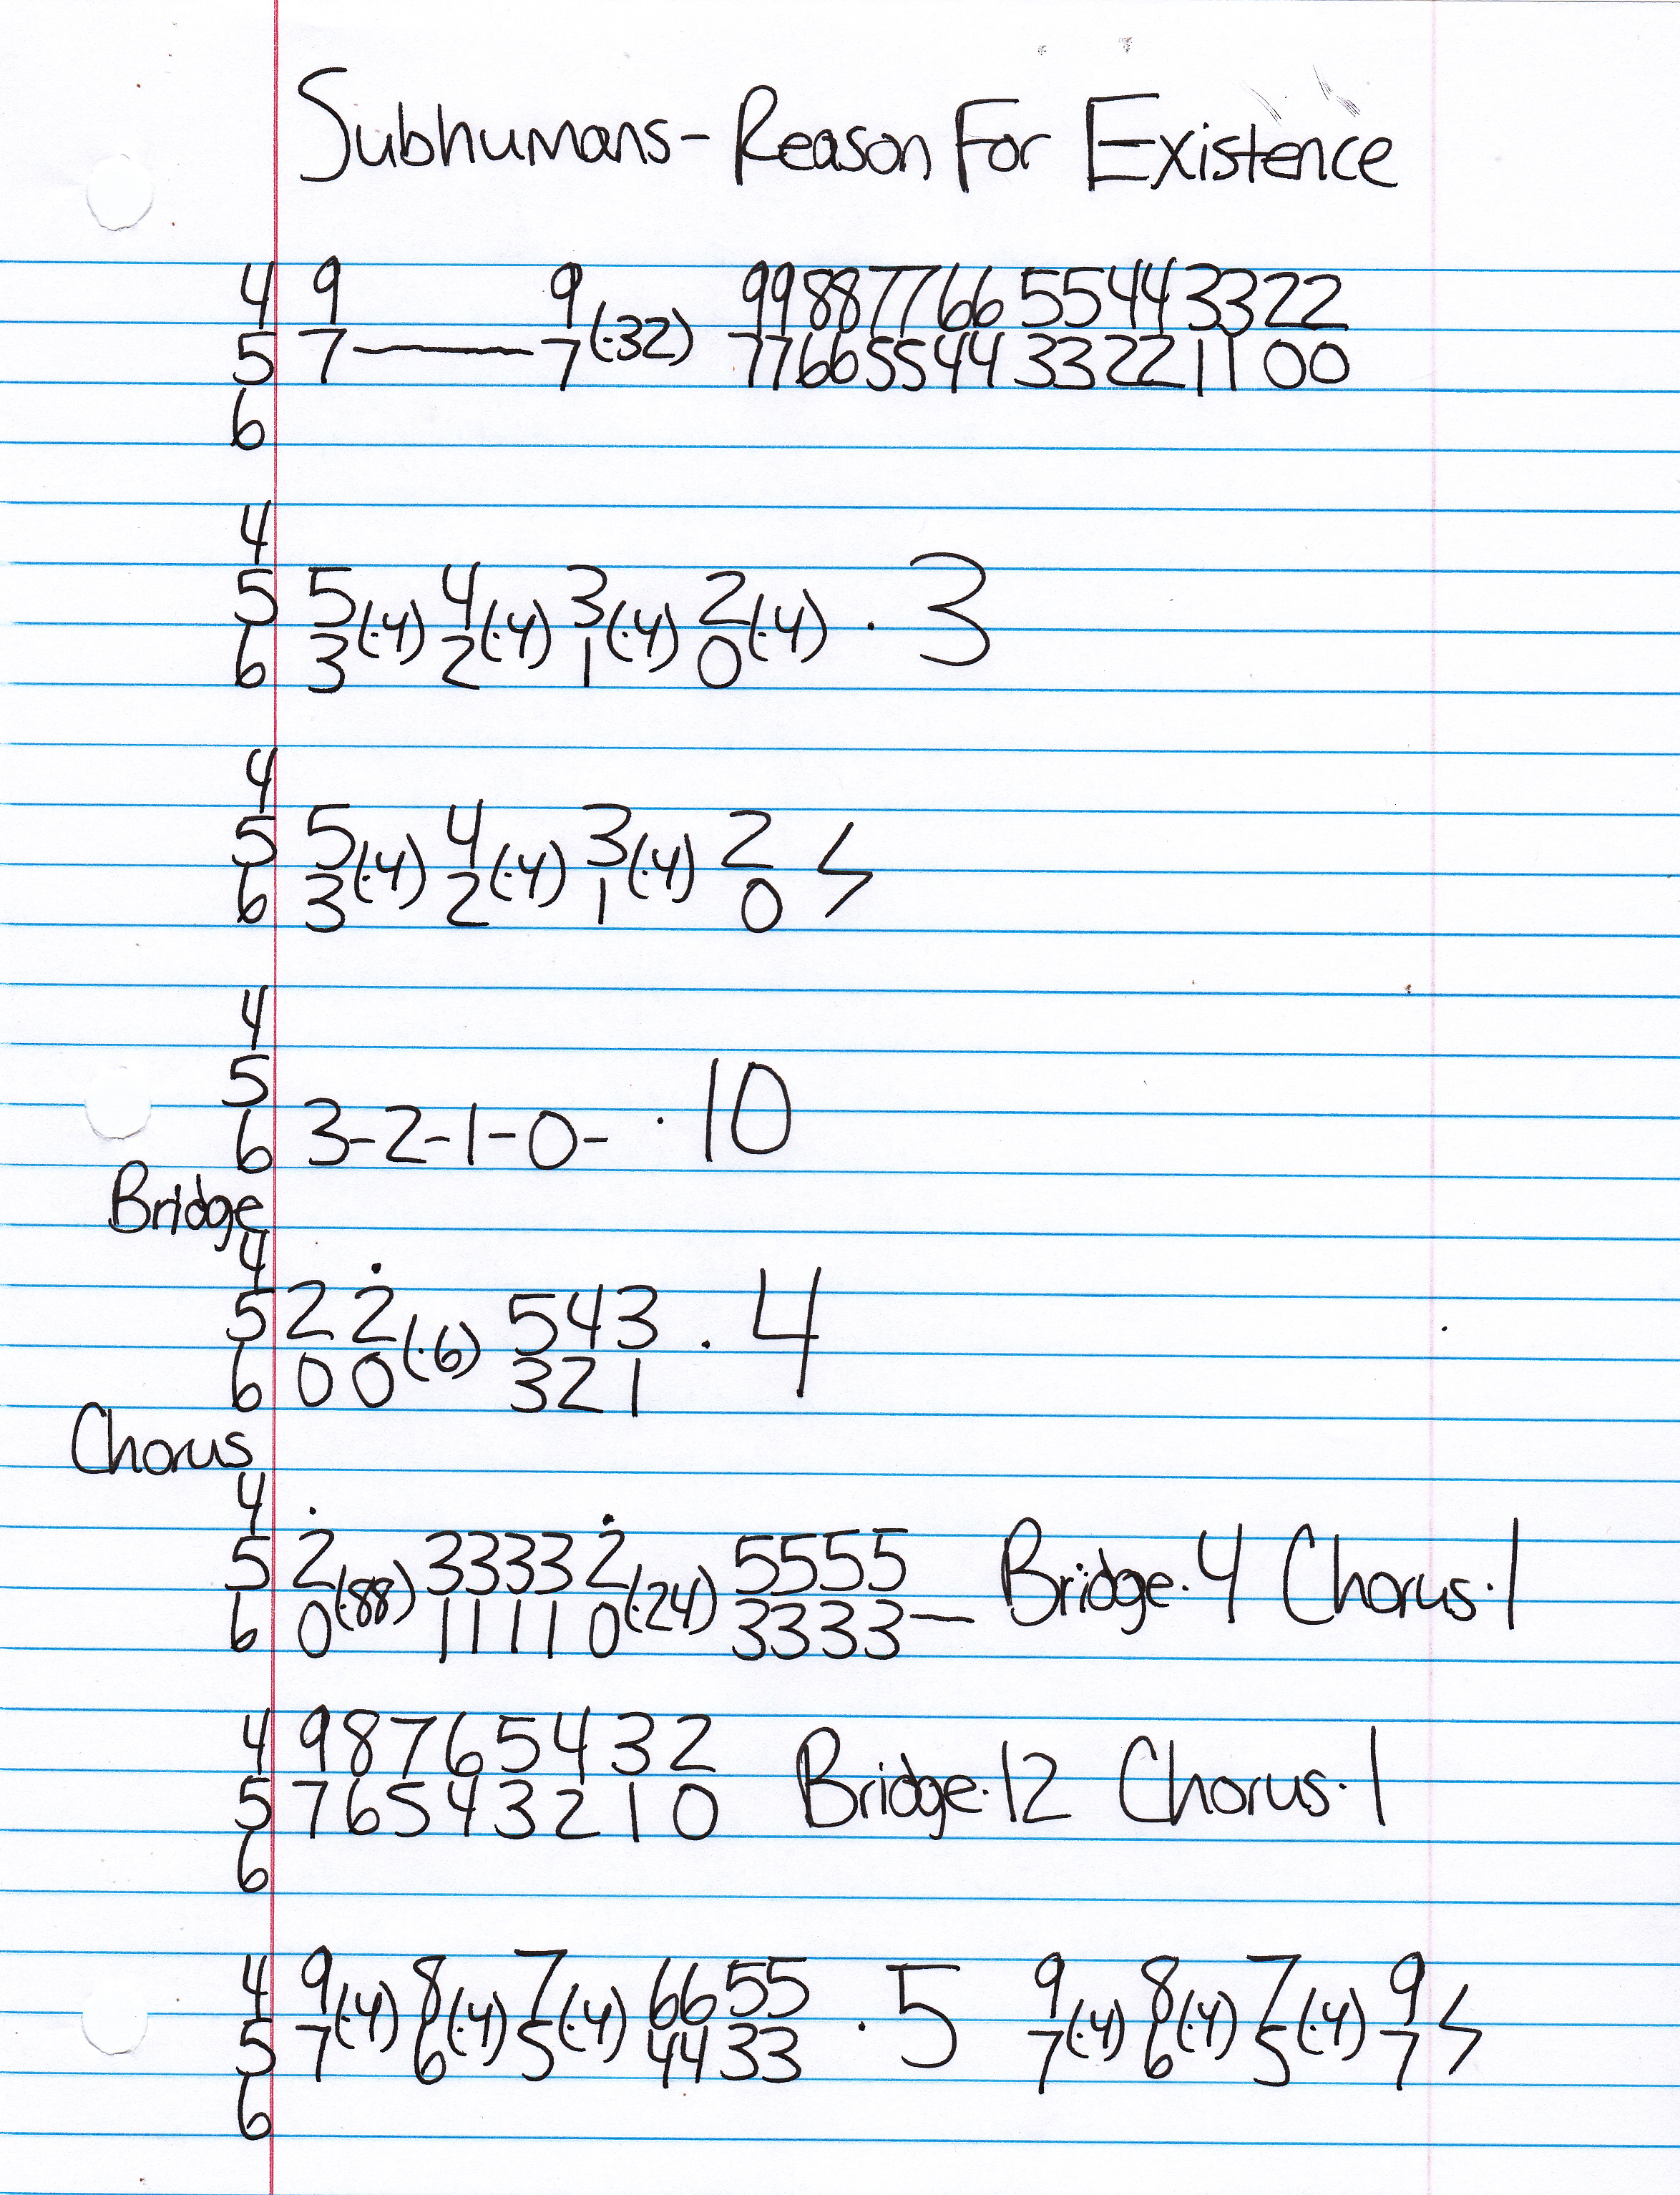 Subhumans - Reason For Existence
4 9 9 9988776655443322
5 7——7(·32) 7766554433221100
6
4
5 5(·4) 4(·4) 3(·4) 2(·4) · 3
6 3 2 1 0
4
5 5(·4) 4(·4) 3(·4) 2
6 3 2 1 0
4
5
6 3-2-1-0- ·10
Bridge
4
5 2 2(·6) 543 · 4
6 0 0 321
Chorus
4
5 2(·88) 3333 2(·24) 5555 Bridge·4 Chorus·1
6 0 1111 0 3333—
4 98765432 Bridge·12 Chorus·1
5 76543210
6
4 9(·4) 8(·4) 7(·4) 6655 · 5 9(·4) 8(·4) 7(·4) 9
5 7 6 5 4433 7 6 5 7
6